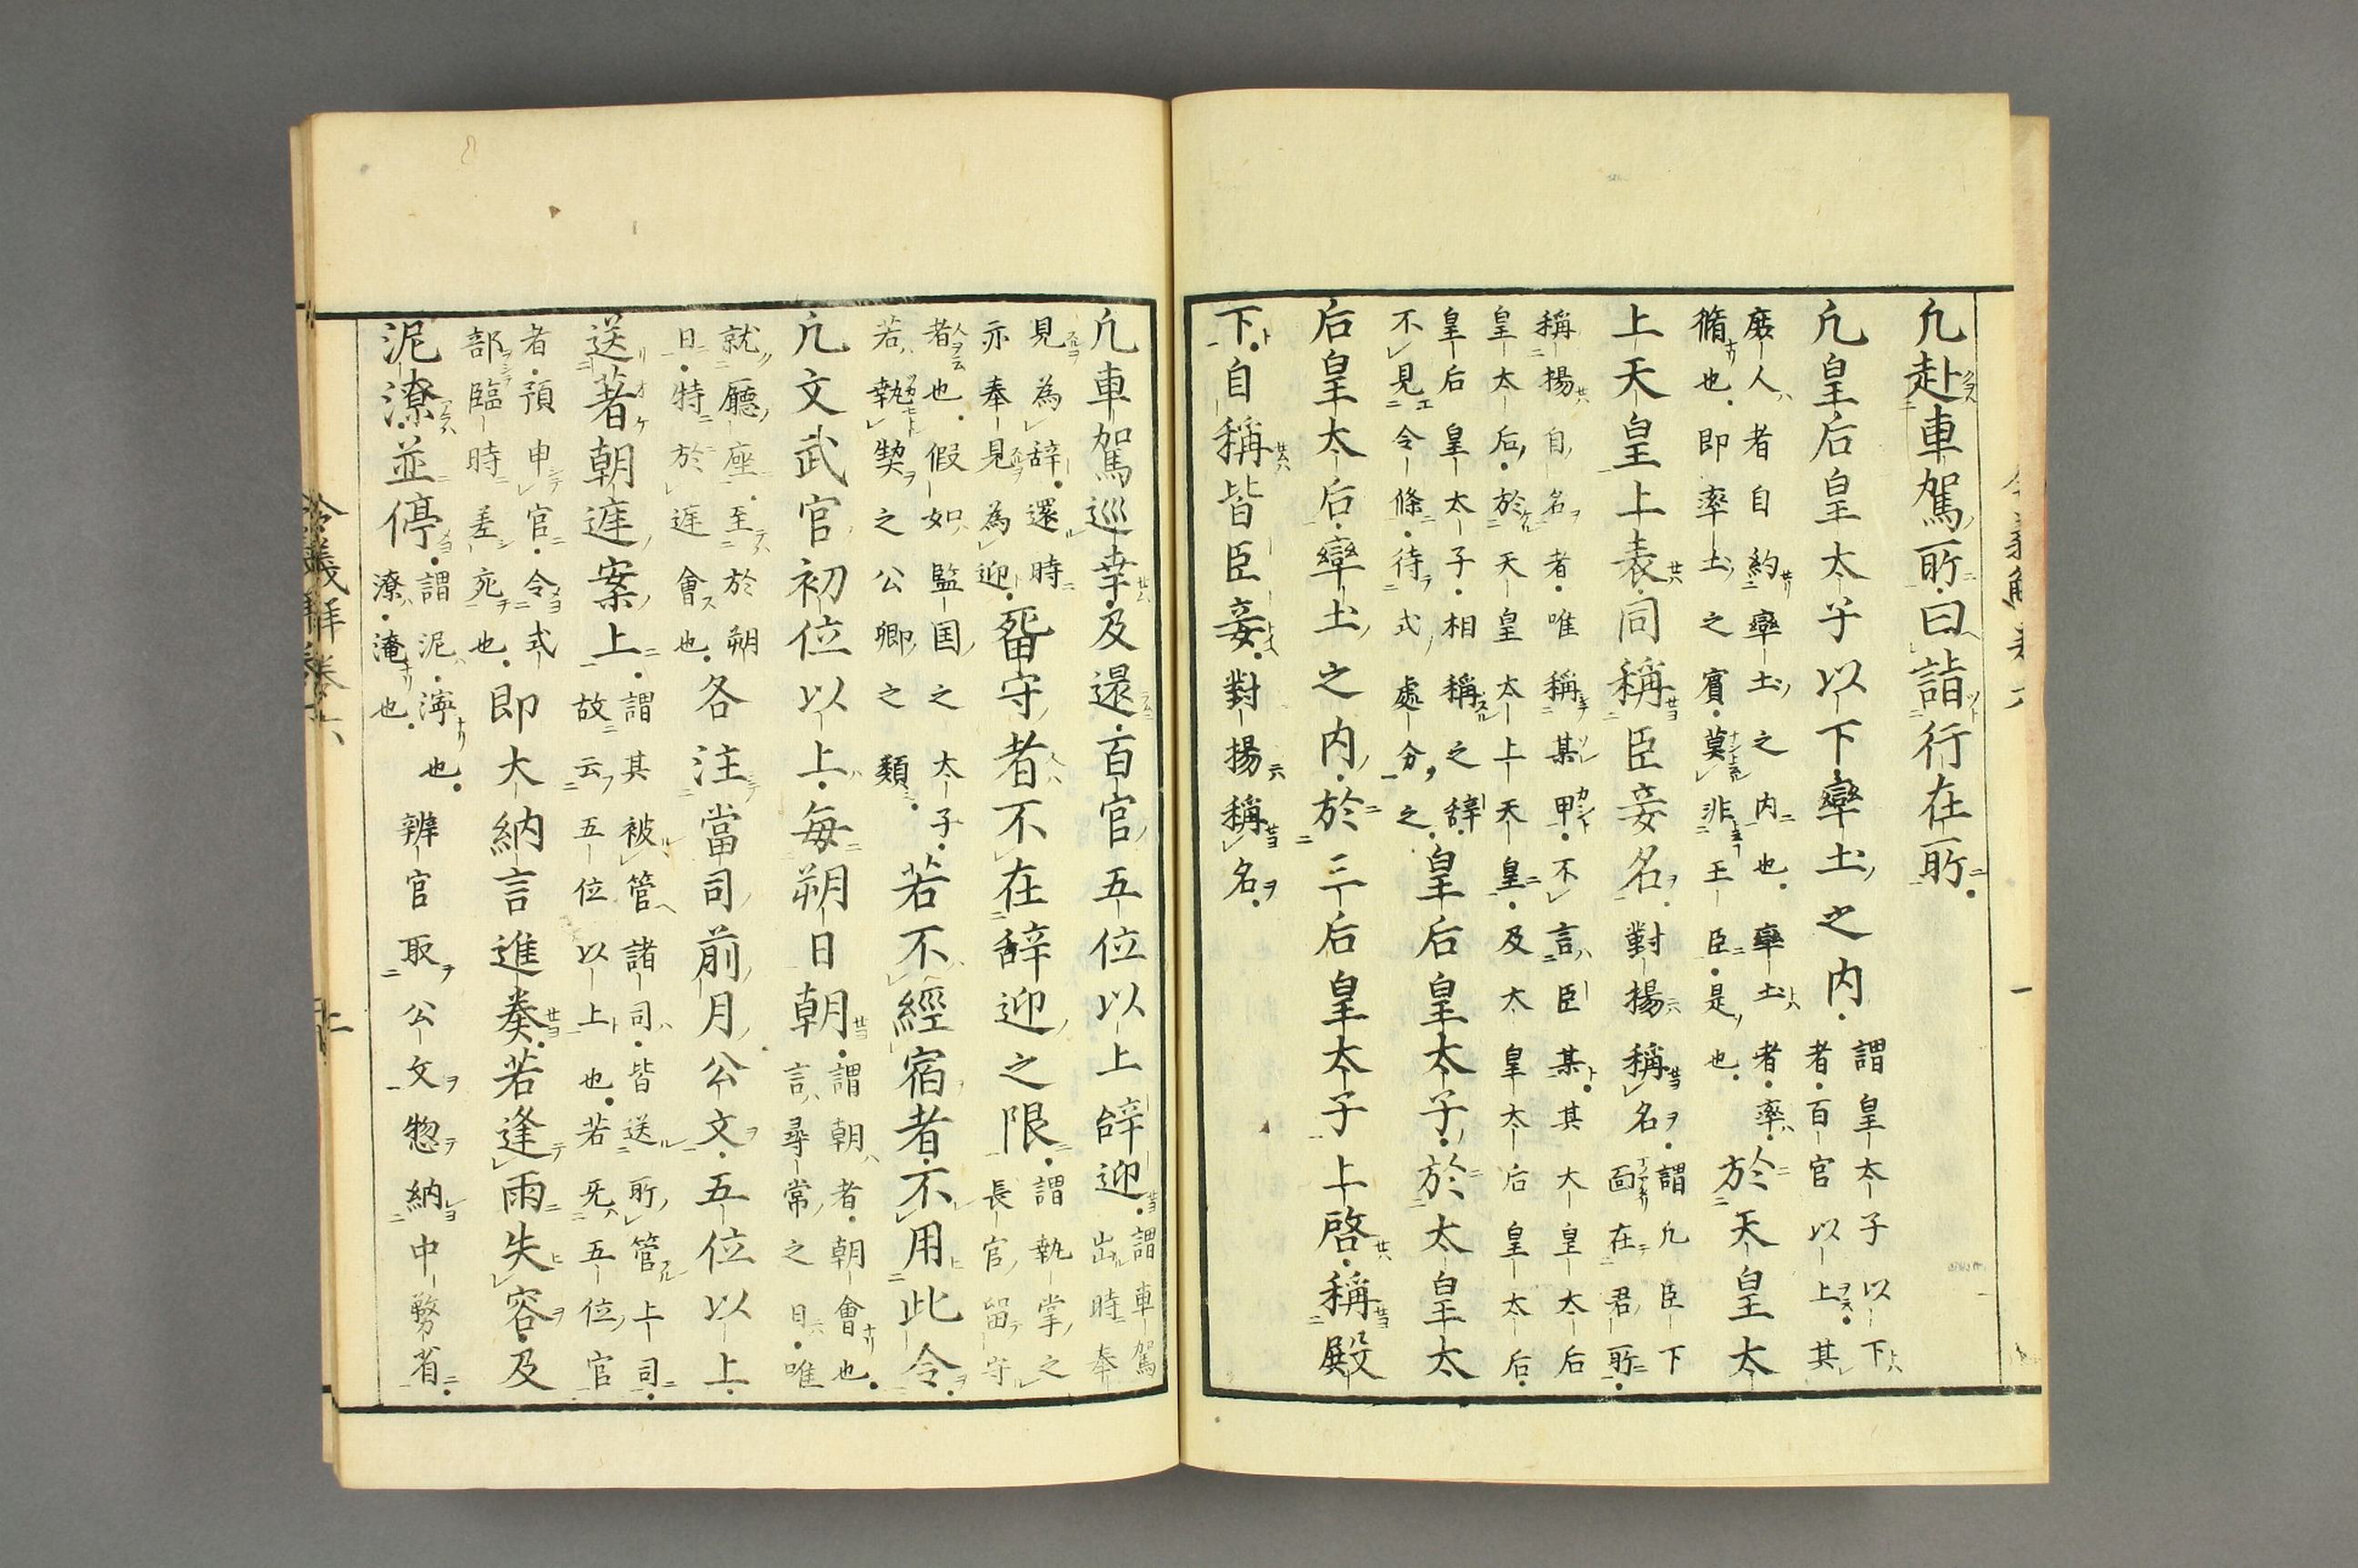 凢赴車駕所曰詣行在所
凢皇后皇太子以下率土之内
謂皇太子以下
者百官以上其
庶人者自約率土之内也率土者率
脩也即率土之賓莫非王臣是也
於天皇太
上天皇上表同稱臣妾名對揚稱名
謂凢臣下
面在君所
稱揚自名者唯稱某甲不言臣某其大皇太后
皇太后於天皇太上天皇及大皇太后皇太后
皇后皇太子相稱之辞
不見令條待式處分之
皇后皇太子於太皇太
后皇太后率土之内於三后皇太子上啓稱殿
下自稱皆臣妾對揚稱名
凢車駕巡幸及還百官五位以上辞迎
謂車駕
出時奉
見為辞還時
亦奉見為迎
畱守者不在辞迎之限
謂執掌之
長官留守
者也假如監国之太子
若執契之公卿之類
若不經宿者不用此令
凢文武官初位以上毎朔日朝
謂朝者朝會也
言尋常之日唯
就廳座至於朔
日特於庭會也
各注當司前月公文五位以上
送著朝庭案上
謂其被管諸司皆送所管上司
故云五位以上也若旡五位官
者預申官令式
部臨時差充也
即大納言進奏若逢雨失容及
泥潦並停
謂泥濘也
潦淹也
辨官取公文惣納中務省
令義解卷六